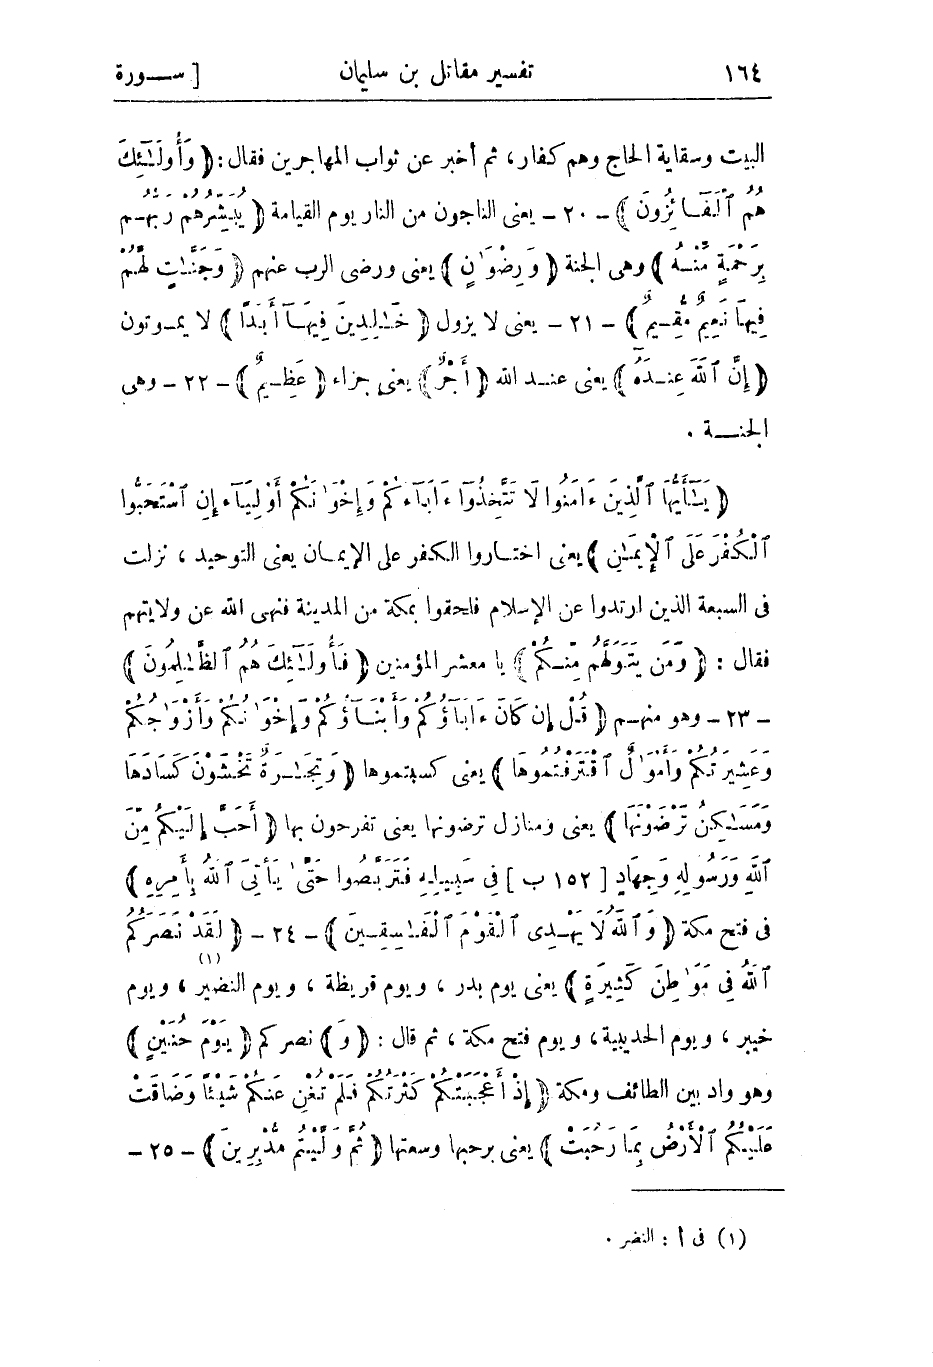 ١٦٤ تفسير مقاتل بن سليمان [ ســورة
البيت وسقاية الحاج وهم كفار، ثم أخبر عن ثواب المهاجرين فقال: ﴿ وَأُولَـٰٓئِكَ
هُمُ ٱلْفَآئِزُونَ ﴾ - ٢٠ - يعنى الناجون من النار يوم القيامة ﴿ يُبَشِّرُهُمْ رَبُّهُم
بِرَحْمَةٍ مِّنْهُ ﴾ وهى الجنة ﴿ وَرِضْوَٰنٍ ﴾ يعنى ورضى الرب عنهم ﴿ وَجَنَّـٰتٍ لَّهُمْ
فِيهَا نَعِيمٌ مُّقِيمٌ ﴾ - ٢١ - يعنى لا يزول ﴿ خَـٰلِدِينَ فِيهَآ أَبَدًا ﴾ لا يموتون
﴿ إِنَّ ٱللَّهَ عِندَهُٓ ﴾ يعنى عند الله ﴿ أَجْرٌ ﴾ يعنى جزاء ﴿ عَظِيمٌ ﴾ - ٢٢ - وهى
الجنــة .
﴿ يَـٰٓأَيُّهَا ٱلَّذِينَ ءَامَنُوا لَا تَتَّخِذُوٓا ءَابَآءَكُمْ وَإِخْوَٰنَكُمْ أَوْلِيَآءَ إِنِ ٱسْتَحَبُّوا
ٱلْكُفْرَ عَلَى ٱلْإِيمَـٰنِ ﴾ يعنى اختاروا الكفر على الإيمان يعنى التوحيد ، نزلت
فى السبعة الذين ارتدوا عن الإسلام فلحقوا بمكة من المدينة فنهى الله عن ولايتهم
فقال : ﴿ وَمَن يَتَوَلَّهُم مِّنكُمْ ﴾ يا معشر المؤمنين ﴿ فَأُولَـٰٓئِكَ هُمُ ٱلظَّـٰلِمُونَ ﴾
- ٢٣ - وهو منهم ﴿ قُلْ إِن كَانَ ءَابَآؤُكُمْ وَأَبْنَآؤُكُمْ وَإِخْوَٰنُكُمْ وَأَزْوَٰجُكُمْ
وَعَشِيرَتُكُمْ وَأَمْوَٰلٌ ٱقْتَرَفْتُمُوهَا ﴾ يعنى كسبتموها ﴿ وَتِجَـٰرَةٌ تَخْشَوْنَ كَسَادَهَا
وَمَسَـٰكِنُ تَرْضَوْنَهَا ﴾ يعنى ومنازل ترضونها يعنى تفرحون بها ﴿ أَحَبَّ إِلَيْكُم مِّنَ
ٱللَّهِ وَرَسُولِهِ وَجِهَادٍ [ ١٥٢ ب ] فِى سَبِيلِهِ فَتَرَبَّصُوا حَتَّىٰ يَأْتِىَ ٱللَّهُ بِأَمْرِهِ ﴾
فى فتح مكة ﴿ وَٱللَّهُ لَا يَهْدِى ٱلْقَوْمَ ٱلْفَـٰسِقِينَ ﴾ - ٢٤ - ﴿ لَقَدْ نَصَرَكُمُ
ٱللَّهُ فِى مَوَاطِنَ كَثِيرَةٍ ﴾ يعنى يوم بدر ، ويوم قريظة ، ويوم النضير (١) ، ويوم
خيبر ، ويوم الحديبية ، ويوم فتح مكة ، ثم قال : ﴿ وَ ﴾ نصركم ﴿ يَوْمَ حُنَيْنٍ ﴾
وهو واد بين الطائف ومكة ﴿ إِذْ أَعْجَبَتْكُمْ كَثْرَتُكُمْ فَلَمْ تُغْنِ عَنكُمْ شَيْئًا وَضَاقَتْ
عَلَيْكُمُ ٱلْأَرْضُ بِمَا رَحُبَتْ ﴾ يعنى برحبها وسعتها ﴿ ثُمَّ وَلَّيْتُم مُّدْبِرِينَ ﴾ - ٢٥ -
(١) فى أ : النضر .